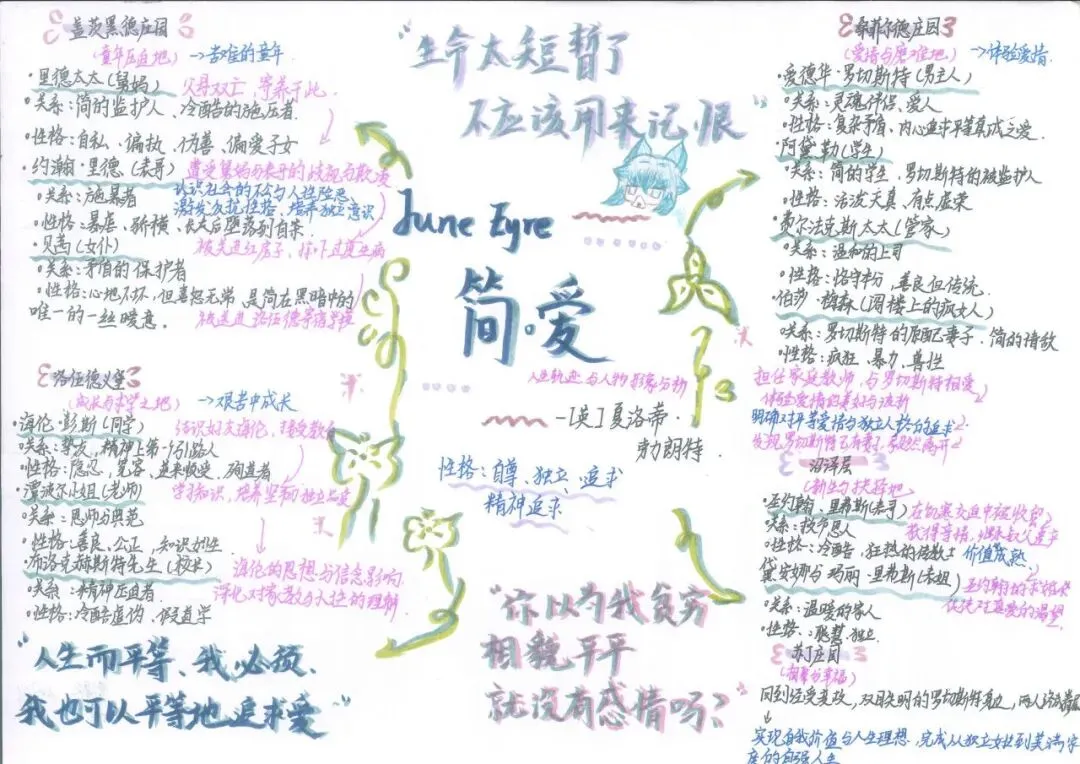 盖茨黑德庄园
(童年压迫地) →苦难的童年
·里德太太(舅妈)
父母双亡，寄养于此
·关系：简的监护人、冷酷的施压者
·性格：自私、偏执、伪善、偏爱子女
·约翰·里德(表哥)
遭受舅妈与表哥的歧视与欺凌
认识社会的不公与人性险恶
激发反抗性格，培养独立意识
·关系：施暴者
·性格：暴虐、骄横、长大后堕落到自杀
·贝茜(女仆)
被关进红房子，惊吓过度生病
·关系：矛盾的保护者
·性格：心地不坏，但喜怒无常，是简在黑暗中的
唯一的一丝暖意.
被送进洛伍德寄宿学校
洛伍德义塾
(成长与求学之地) →艰苦中成长
·海伦·彭斯(同学)
结识好友海伦，接受教育
·关系：挚友，精神上第一个引路人
·性格：隐忍，宽容，逆来顺受、殉道者
·潭波尔小姐(老师)
学习知识，培养坚韧独立品质
·关系：恩师与典范
·性格：善良、公正，知识女性.
·布洛克赫斯特先生(校长)
海伦的思想与信念影响
深化对宗教与人性的理解
·关系：精神压迫者
·性格：冷酷虚伪，假道学
“人生而平等、我必须、
我也可以平等地追求爱”
“生命太短暂了
不应该用来记恨”
June Eyre
简·爱
人生轨迹与人物形象分析
—[英]夏洛蒂·
勃朗特
性格：自尊、独立、追求
精神追求
“你以为我贫穷
相貌平平
就没有感情吗？”
桑菲尔德庄园
(爱情与磨难地) →体验爱情
·爱德华·罗切斯特(男主人)
·关系：灵魂伴侣、爱人
·性格：复杂矛盾、内心追求平等真诚之爱.
·阿黛勒(学生)
·关系：简的学生，罗切斯特的被监护人
·性格：活泼天真，有点虚荣
·费尔法克斯太太(管家)
·关系：温和的上司
·性格：恪守本分，善良但传统.
·伯莎·梅森(阁楼上的疯女人)
·关系：罗切斯特的原配妻子、简的情敌
·性格：疯狂、暴力、兽性
担任家庭教师，与罗切斯特相爱
体验爱情的美好与波折
明确对平等爱情与独立人格的追求
发现罗切斯特已有妻子，毅然离开
沼泽居
(新生与抉择地
·圣约翰、里弗斯(表哥)
在饥寒交迫中被收留
获得亲情，继承叔父遗产
·关系：救命恩人
·性格：冷酷，狂热的传教士
价值成熟
·黛安娜与玛丽·里弗斯(表姐)
圣约翰的求婚
·关系：温暖的家人
·性格：聪慧、独立.
芬丁庄园
(归宿与幸福)
回到经受变故，双目失明的罗切斯特身边，两人
实现自我价值与人生理想，完成从独立女性到美满家
庭的自强人生